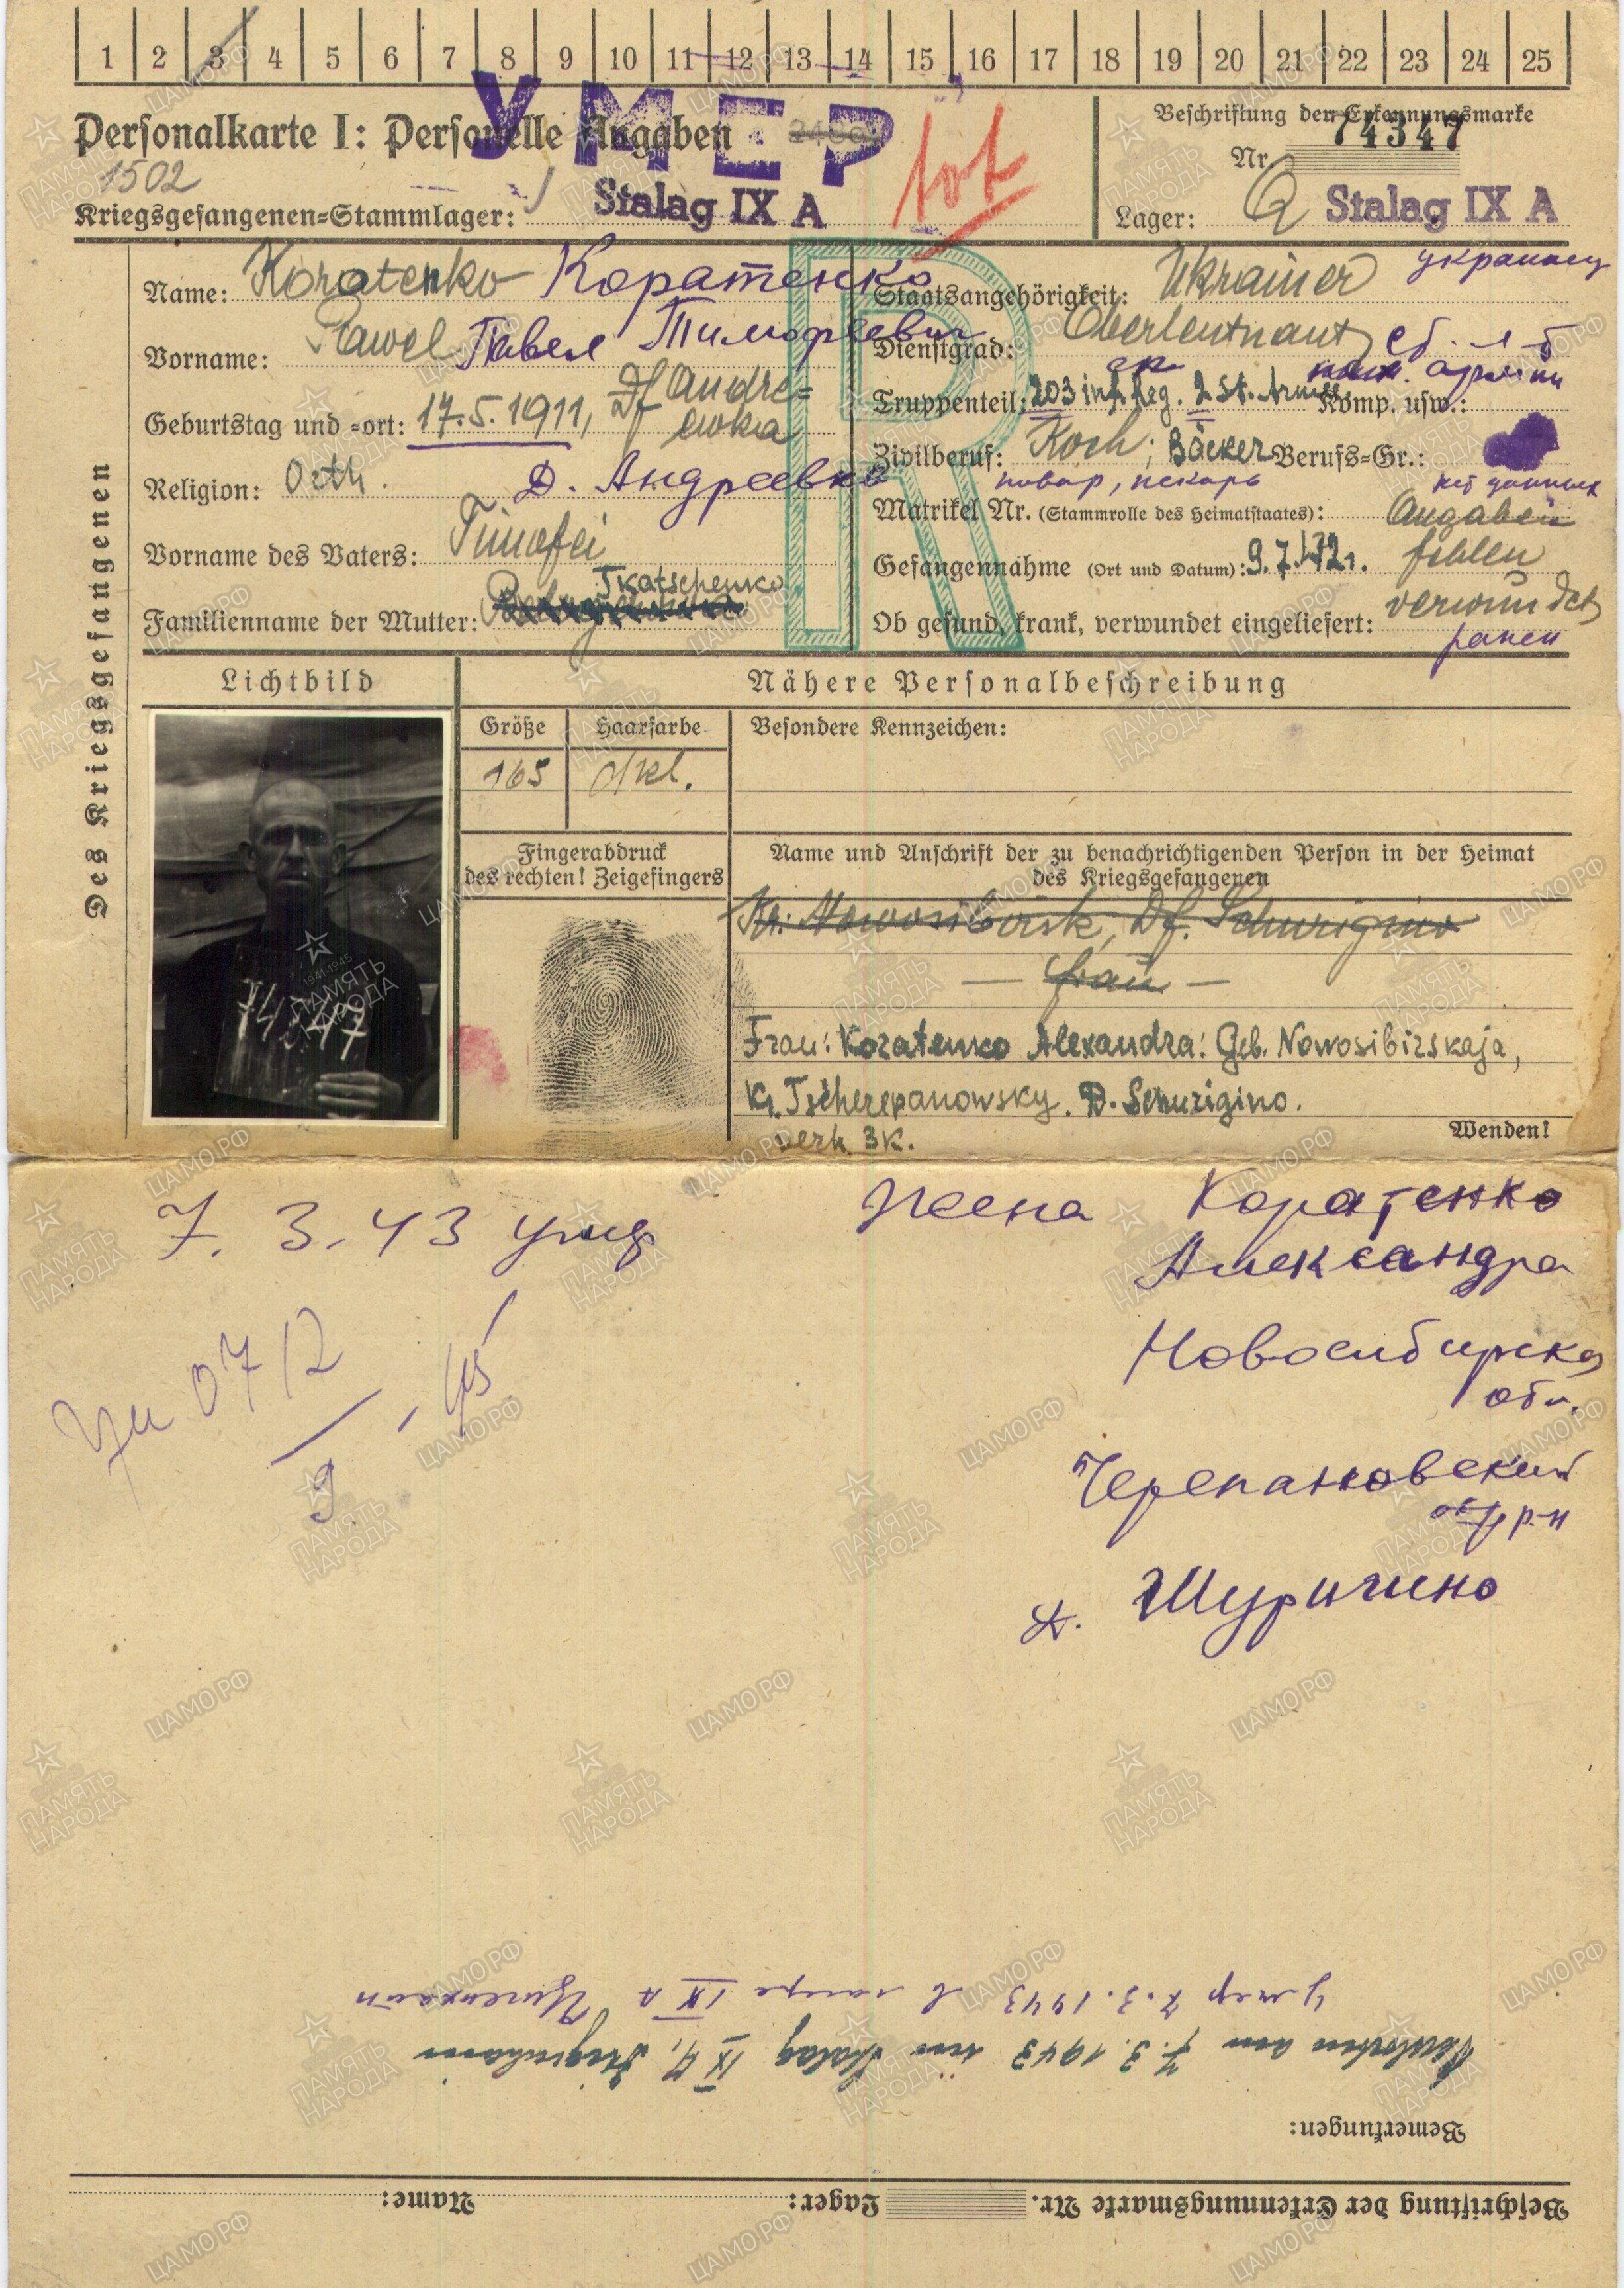 1 2 3 4 5 6 7 8 9 10 11 12 13 14 15 16 17 18 19 20 21 22 23 24 25
Personalkarte I: Personelle Angaben
УМЕР
tot
Beschriftung der Erkennungsmarke
Nr. 74347
1502
Kriegsgefangenen=Stammlager: Stalag IX A
Lager: Stalag IX A
Des Kriegsgefangenen
R
Name: Koratenko Коратенко
Vorname: Pawel Павел Тимофеевич
Geburtstag und =ort: 17.5.1911, Df Andre=
ewka
Religion: Orth. Д. Андреевка
Vorname des Vaters: Timofei
Familienname der Mutter: Tkatschenko
Staatsangehörigkeit: Ukrainer украинец
Dienstgrad: Oberleutnant
Truppenteil: 203 inf. Reg. 2 St. Armee Komp. usw.:
армии
Zivilberuf: Koch; Bäcker Berufs=Gr.:
повар, пекарь нет данных
Matrikel Nr. (Stammrolle des Heimatstaates): Angaben
fehlen
Gefangennahme (Ort und Datum): 9.7.42
Ob gesund, krank, verwundet eingeliefert: verwundet
ранен
Lichtbild
Nähere Personalbeschreibung
Größe Haarfarbe Besondere Kennzeichen:
165 dkl.
74347
Fingerabdruck
des rechten! Zeigefingers
Name und Anschrift der zu benachrichtigenden Person in der Heimat
des Kriegsgefangenen
Kr. Nowosibirsk, Df. Schurigino
— Frau —
Frau: Koratenko Alexandra: Geb. Nowosibirskaja,
Kr. Tscherepanowsky. D. Schurigino.
verh. 3K.
Wenden!
7. 3. 43 умер
Жена Коратенко
Александра
Новосибирская
обл.
Черепановский
р-н
д. Шуригино
0712
9
45
Умер 7.3.1943 в лагере IX A Цигенхайн
Verstorben am 7.3.1943 im Stalag IX A, Ziegenhain
Bemerkungen:
Beschriftung der Erkennungsmarke Nr. Lager: Name:
ПАМЯТЬ НАРОДА
1941-1945
ЦАМО РФ